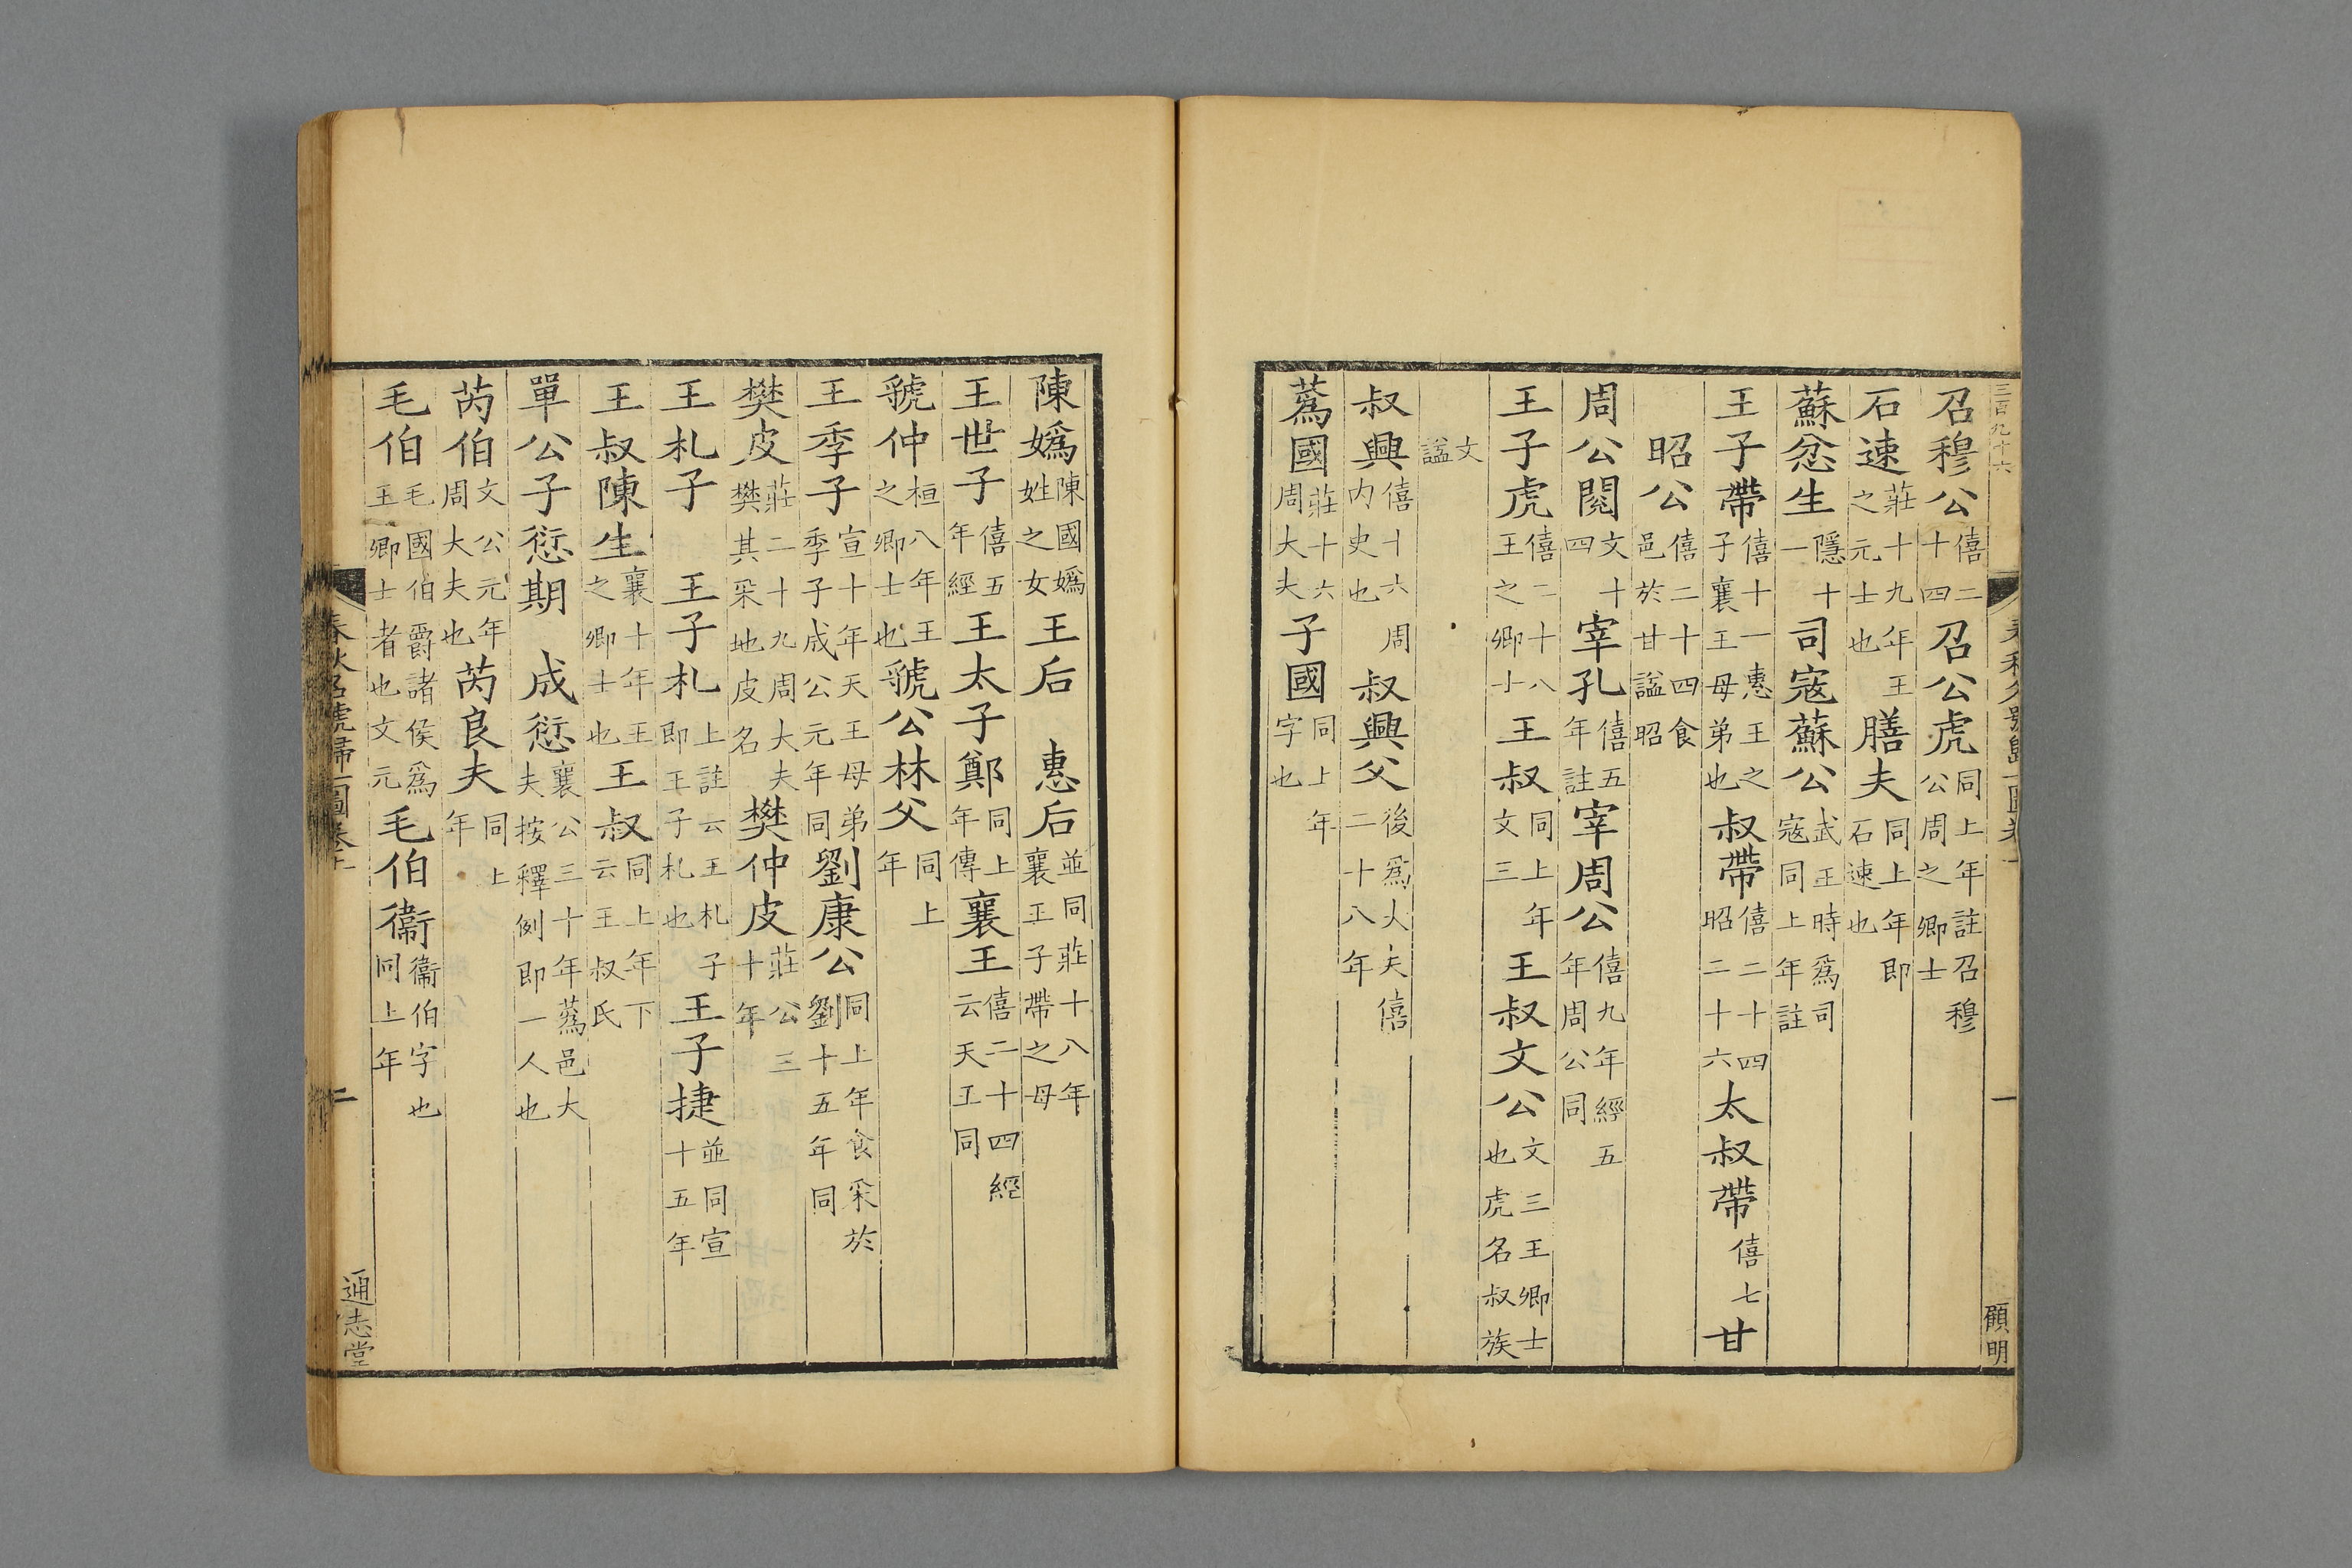 三百九十六
召穆公僖二十四召公虎同上年註召穆公周之卿士
石速莊十九年王之元士也膳夫同上年即石速也
蘇忿生隱十一司寇蘇公武王時爲司寇同上年註
王子帶僖十一惠王之子襄王母弟也叔帶僖二十四昭二十六太叔帶僖七甘
昭公僖二十四食邑於甘諡昭
周公閱文十四宰孔僖五年註宰周公僖九年經五年周公同
王子虎僖二十八王之卿士王叔同上年文三王叔文公文三王卿士也虎名叔族
文諡
叔興僖十六周内史也叔興父後爲大夫僖二十八年
蒍國莊十六周大夫子國同上年字也
顧明
陳嬀陳國嬀姓之女王后惠后並同莊十八年襄王子帶之母
王世子僖五年經王太子鄭同上年傳襄王僖二十四經云天王同
虢仲桓八年王之卿士也虢公林父同上年
王季子宣十年天王母弟季子成公元年同劉康公同上年食采於劉十五年同
樊皮莊二十九周大夫樊其采地皮名樊仲皮莊公三十年
王札子 王子札上註云王札子即王子札也王子捷並同宣十五年
王叔陳生襄十年王之卿士也王叔同上年下云王叔氏
單公子愆期 成愆襄公三十年蒍邑大夫按釋例即一人也
芮伯文公元年周大夫也芮良夫同上年
毛伯毛國伯爵諸侯爲王卿士者也文元毛伯衞衞伯字也同上年
春秋名號歸一圖卷上
二
通志堂